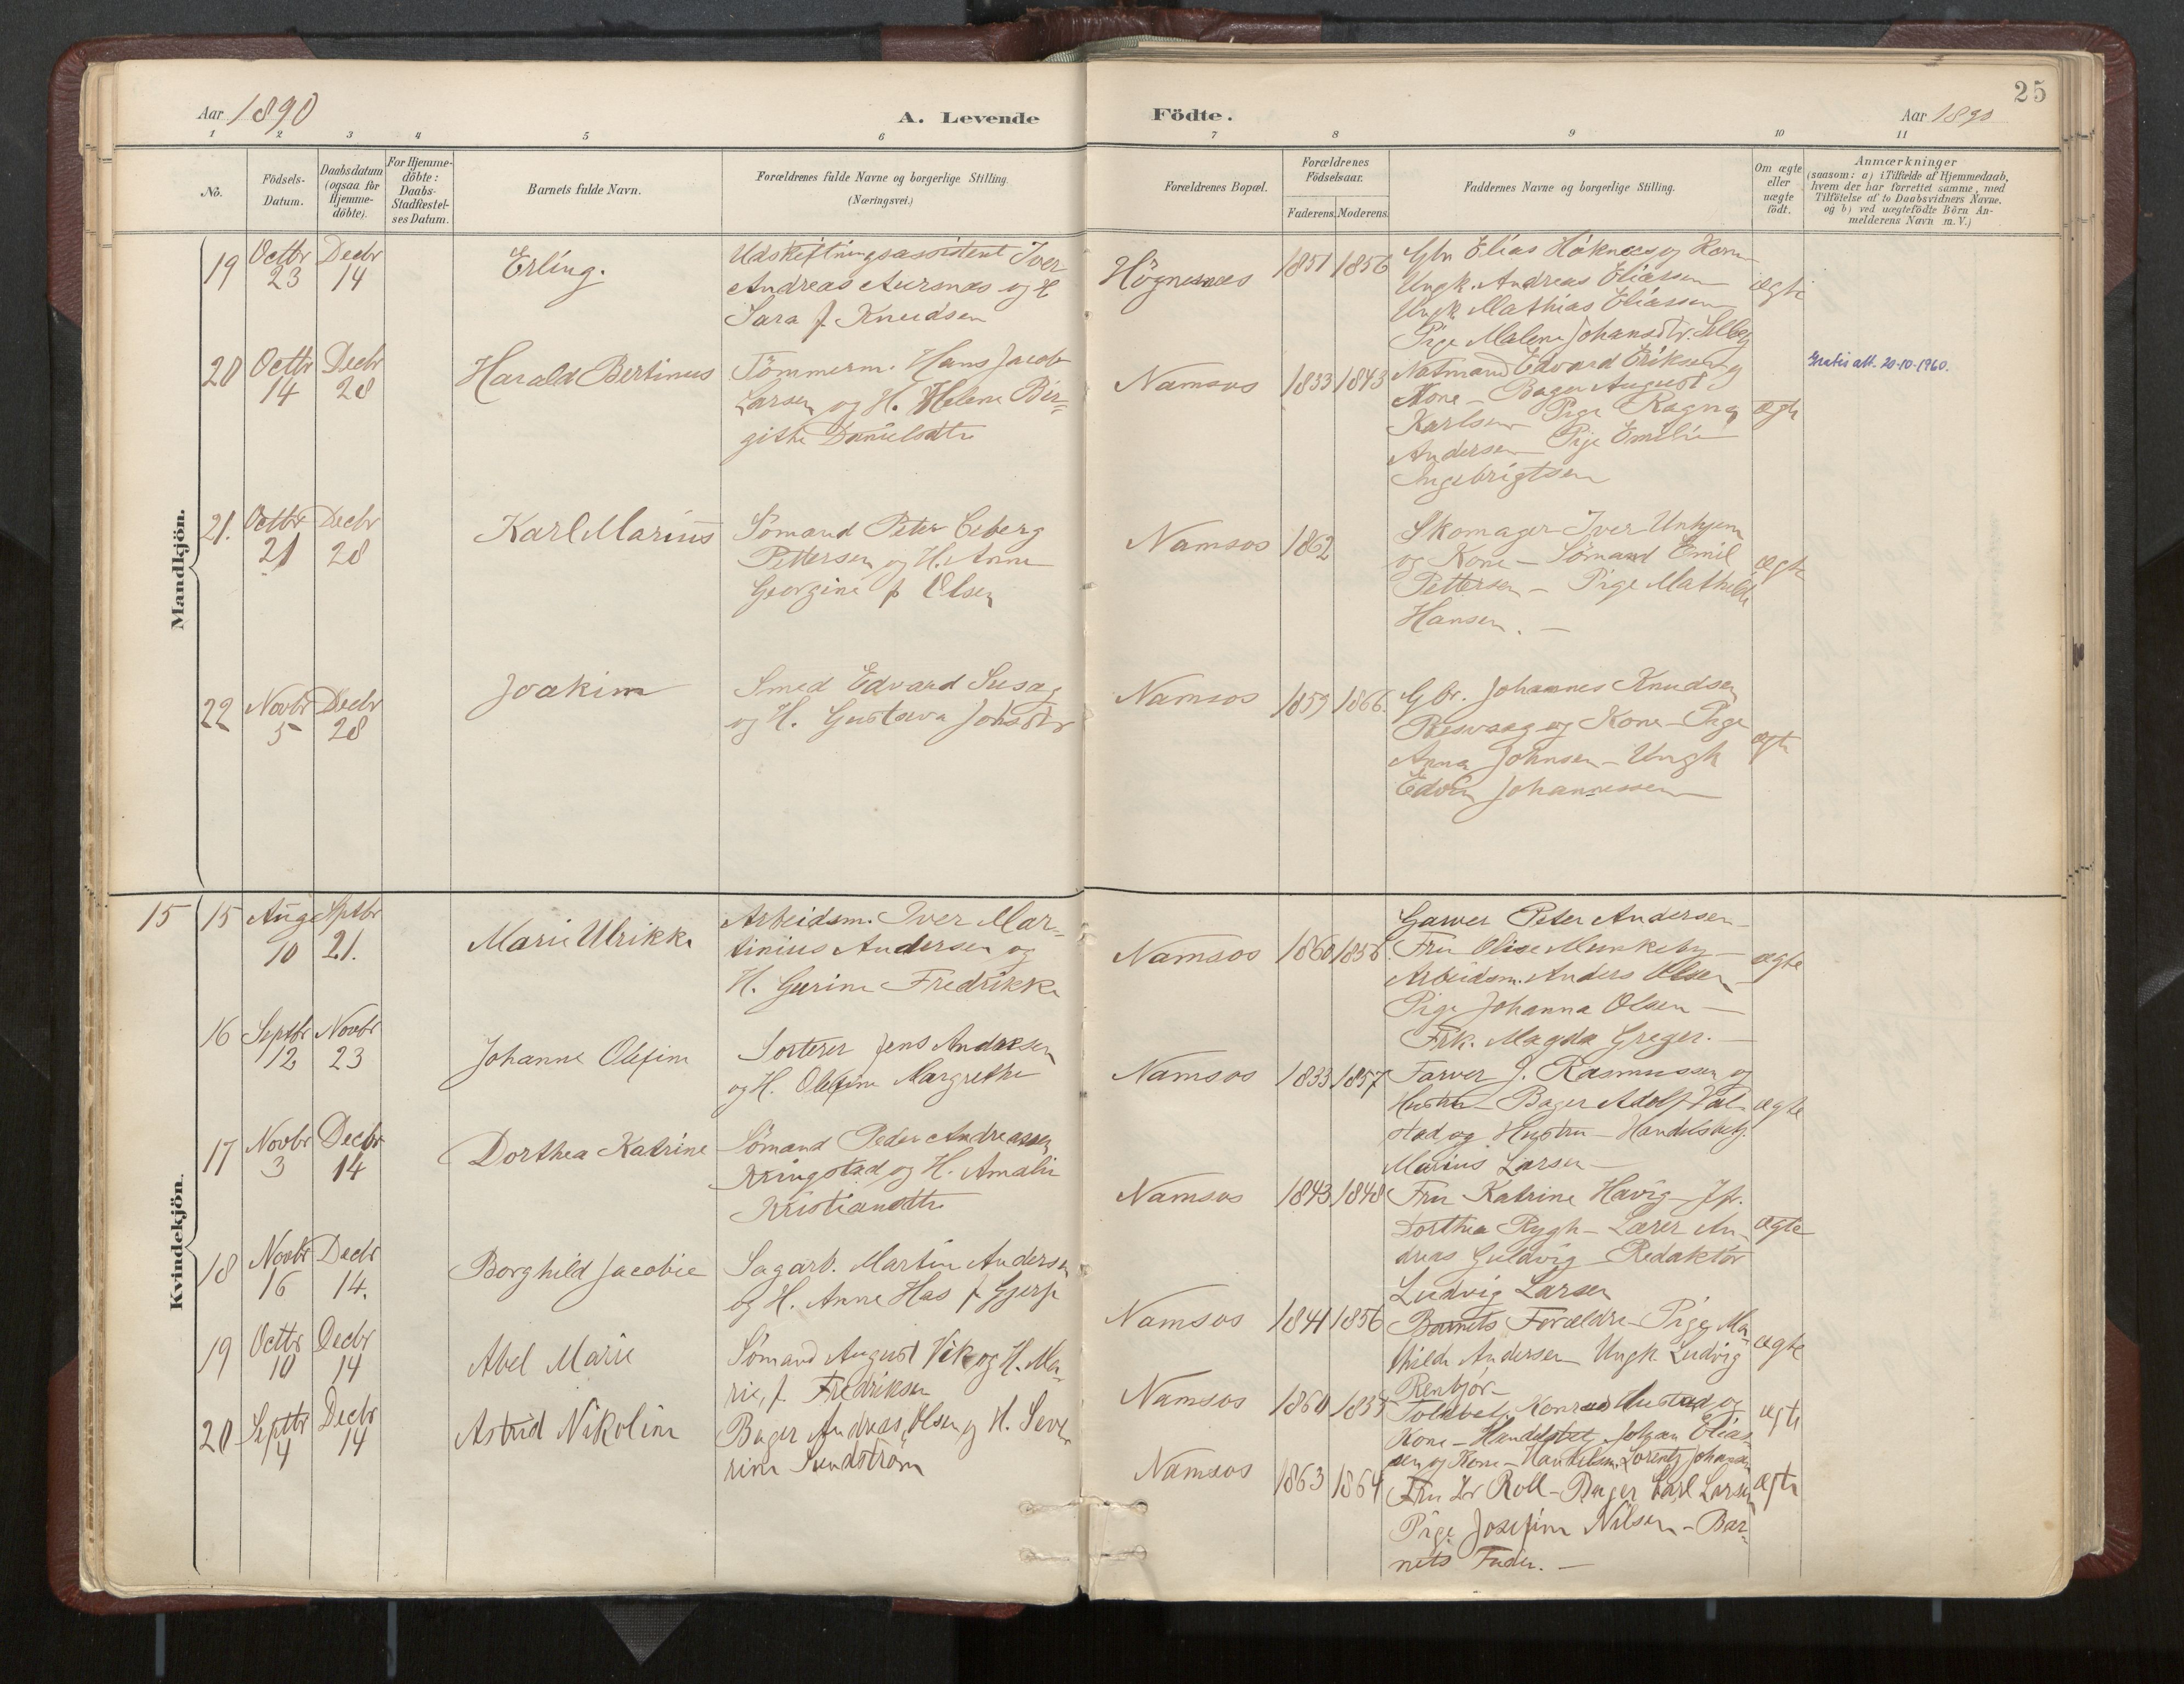 25
Aar 1890
A. Levende
Födte.
Aar 1890
1 2 3 4 5 6 7 8 9 10 11
No.
Födsels-
Datum.
Daabsdatum
(ogsaa for
Hjemme-
döbte).
For Hjemme-
döbte:
Daabs-
Stadfæstel-
ses Datum.
Barnets fulde Navn.
Forældrenes fulde Navne og borgerlige Stilling.
(Næringsvei.)
Forældrenes Bopæl.
Forældrenes
Födselsaar.
Faderens. Moderens.
Faddernes Navne og borgerlige Stilling.
Om ægte
eller
uægte
födt.
Anmærkninger
(saasom: a) i Tilfælde af Hjemmedaab,
hvem der har forrettet samme, med
Tilföielse af to Daabsvidners Navne.
og b) ved uægtefödte Börn An-
melderens Navn m. V.)
Mandkjön.
19
Octbr
23
Decbr
14
Erling.
Udskiftningsassistent Iver
Andreas Aursnes og H
Sara f. Knudsen
Högnesnæs
1851 1856
Gbr Elias Høknes og Kone
Ungk. Andreas Eliassen
Ungk Mathias Eliassen
Pige Malene Johansdtr. Selbey
ægte
20
Octbr
14
Decbr
28
Harald Bertinus
Tömmerm. Hans Jacob
Larsen og H. Helene Bir-
gitte Danielsdtr
Namsos
1833 1843
Natmand Edvard Eriksen og
Kone - Bager August
Karlsen Pige Ragna
Andersen - Pige Emilie
Ingebrigtsen
ægte
Gratis att. 20-10-1960.
21.
Octbr
21
Decbr
28
Karl Marius
Sömand Peter Ceberg
Pettersen og H. Anne
Georgine f Olsen
Namsos
1862
Skomager Iver Unhjem
og Kone - Sömand Emil
Pettersen - Pige Mathilde
Hansen. -
ægte
22
Novbr
5
Decbr
28
Joakim
Smed Edvard Susag
og H. Gustava Johsdtr
Namsos
1859 1866.
Gbr. Johannes Knudsen
og Kone - Pige
Anna Johnsen - Ungk
Edvin Johannessen
ægte
Kvindekjön.
15 15
Aug
10
Septbr
21.
Marie Ulrikke
Arbeidsm. Iver Mar-
tinius Andersen og
H. Gurine Fredrikke
Namsos
1860 1858.
Garver Peter Andersen -
Fru Olise Munkeby -
Arbeidsm. Anders Olsen
Pige Johanna Olsen -
Frk. Magda Greger. -
ægte
16
Septbr
12
Novbr
23
Johanne Olefine
Sorterer Jens Andresen
og H. Olefine Margrethe
Namsos
1833 1857
Farver J. Rasmussen og
Hustru - Bager Adolf Val-
stad og Hustru - Handelsbetj.
Marius Larsen -
ægte
17
Novbr
3
Decbr
14
Dorthea Katrine
Sömand Peder Andreassen
Kringstad og H. Amalie
Kristiansdtr
Namsos
1843 1848
Fru Katrine Havig - Jfr.
Dorthea Rygh - Lærer An-
dreas Guldvig - Redaktör
Ludvig Larsen
ægte
18
Novbr
16
Decbr
14.
Borghild Jacobie
Sagarb. Martin Andersen
og H. Anne Has f Gjerp
Namsos
1841 1856
Barnets Forældre - Pige Ma-
thilde Andersen - Ungk. Ludvig
Renbjör -
ægte
19
Octbr
10
Decbr
14
Abel Marie
Sömand August Vik og H. Ma-
rie, f. Fredriksen
Namsos
1860 1855
Toldbetj. Konrad Hustad og
Kone - Handelsbetj. Johan Elias-
sen og Kone - Handelsm. Lorentz Johansen
ægte
20
Septbr
14
Decbr
14
Astrid Nikoline
Bager Andreas Olsen og H. Seve-
rine Sundström
Namsos
1863 1864
Fru Dr Roll - Bager Carl Larsen
Pige Josefine Nilsen - Bar-
nets Fader. -
ægte